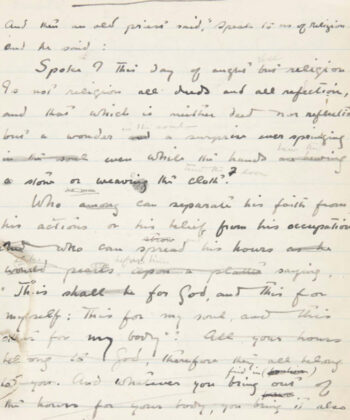 And then an old priest said, "Speak to us of Religion
and he said:
Spoke I this day of aught but religion
Is not religion all deeds and all reflection,
and that which is neither deed nor reflection
but a wonder and a surprise ever springing
in the soul
in the soul even while the hands are hewing
a stone or weaving the cloth?
Who among can separate his faith from
his actions or his belief from his occupation
And who can spread his hours as he
before him
would pearls upon a platter saying,
"This shall be for God, and this for
myself; this for my soul, and this
for my body"? All your hours
belong to God, therefore they all belong
to you. And whatever you bring out of
find in
the hours for your body, you bring it also